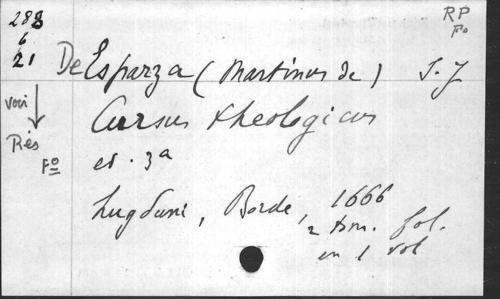 288
6
21
RP
Fo
De Esparza (Martinus de) S. J
voir
Rés
Fo
Cursus theologicus
ed. 3a
Lugduni, Borde, 1666
2 tom. fol.
en 1 vol